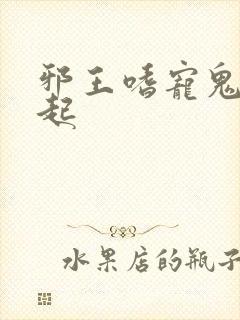 邪王嗜宠鬼
起
水果店的瓶子